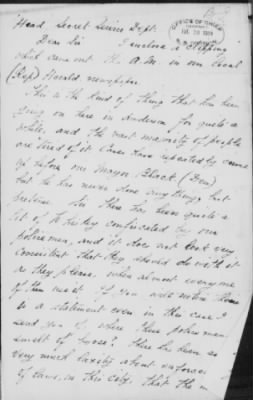 Head, Secret Service Dept.
OFFICE OF CHIEF
Dear Sir I enclose a clipping
which came out A.M. in our local
(Rep) Herald newspaper.
This is the kind of thing that has been
going on here in Anderson for quite a
while, and the vast majority of people
are tired of it. Cases have repeatedly come
up before our Mayor Black (Dem)
but he has never done any thing, but
There has been quite a
lot of Whiskey confiscated by our
policemen, and it does not look very
consistent that they should do with it
as they please. when almost every one
of them use it. If you will notice there
is a statement even in this case I
send you of where these policemen
smelt of booze! There has been so
very much laxity about enforcement
of laws, in this city, that the